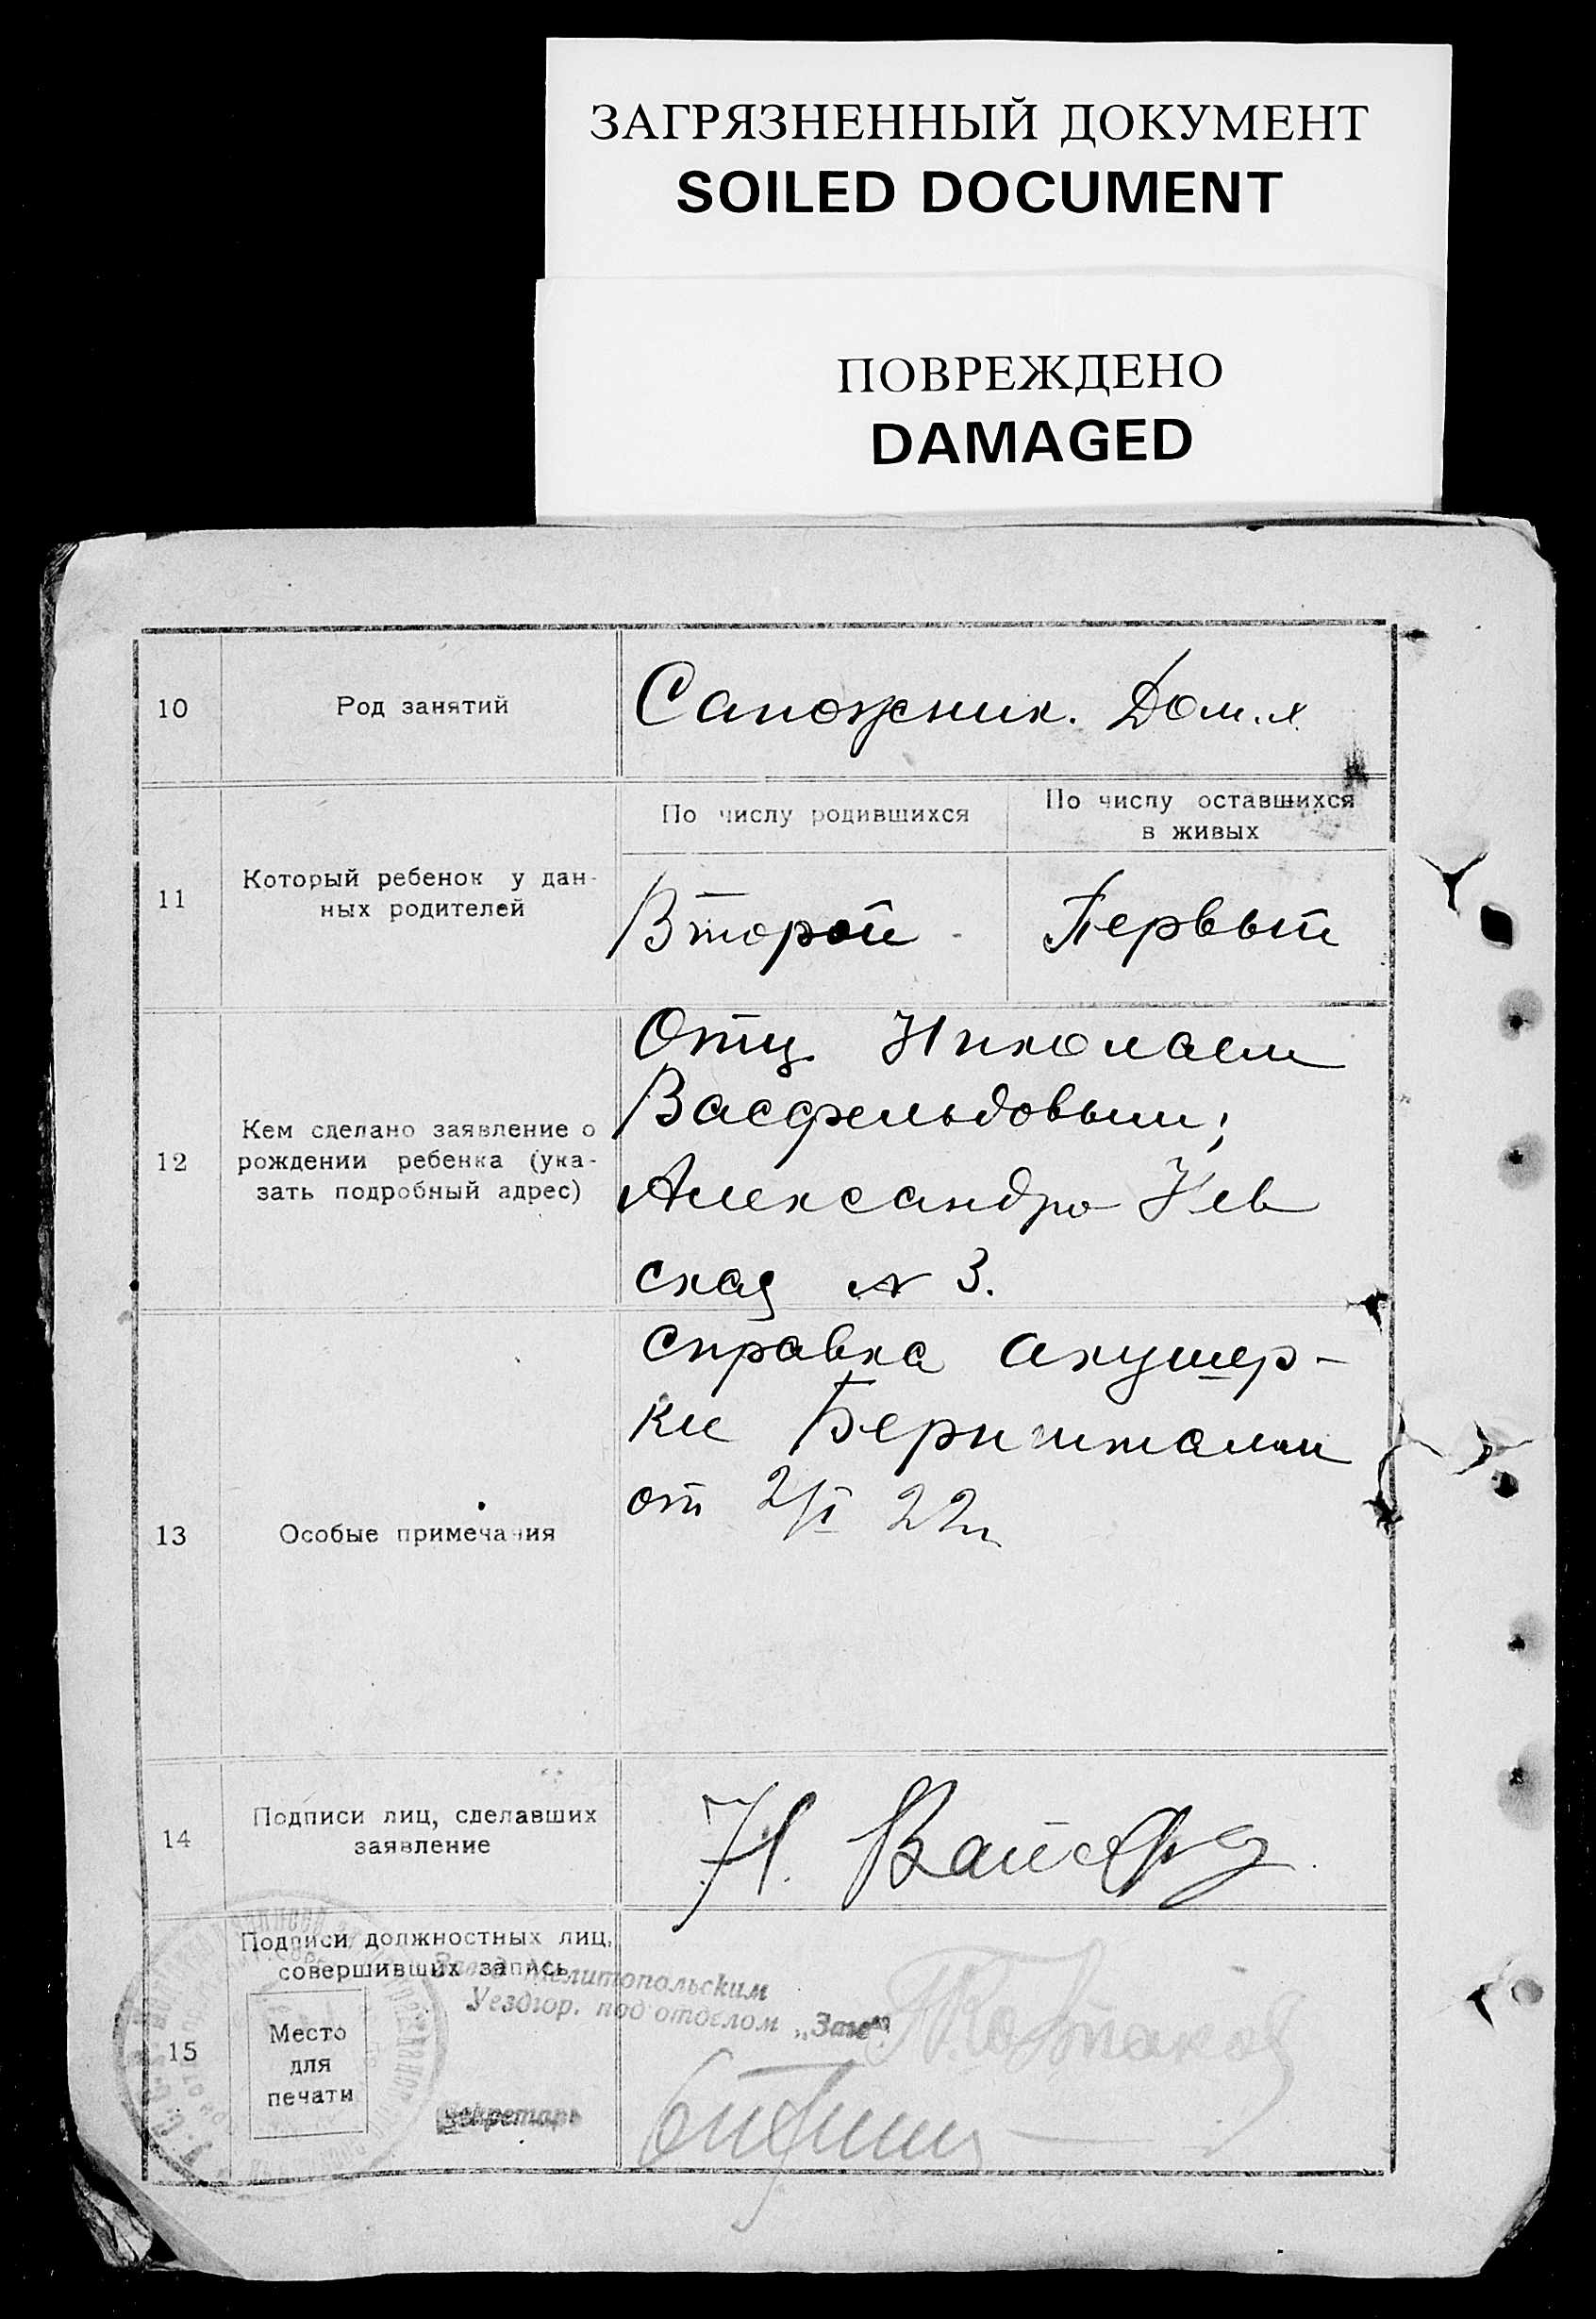 ЗАГРЯЗНЕННЫЙ ДОКУМЕНТ
SOILED DOCUMENT
ПОВРЕЖДЕНО
DAMAGED
10
Род занятий
Сапожник. Дом. х.
11
Который ребенок у дан-
ных родителей
По числу родившихся
По числу оставшихся
в живых
Второй
Первый
12
Кем сделано заявление о
рождении ребенка (ука-
зать подробный адрес)
Отц. Николаем
Васфельдовым;
Александро Нев
ская № 3.
13
Особые примечания
справка акушер-
ки Бернштам
от 2/I 22г.
14
Подписи лиц, сделавших
заявление
Н. Вайсфд
15
Подписи должностных лиц,
совершивших запись
Место
для
печати
Мелитопольским
Уездгор. подотделом „Загс"
Секретарь